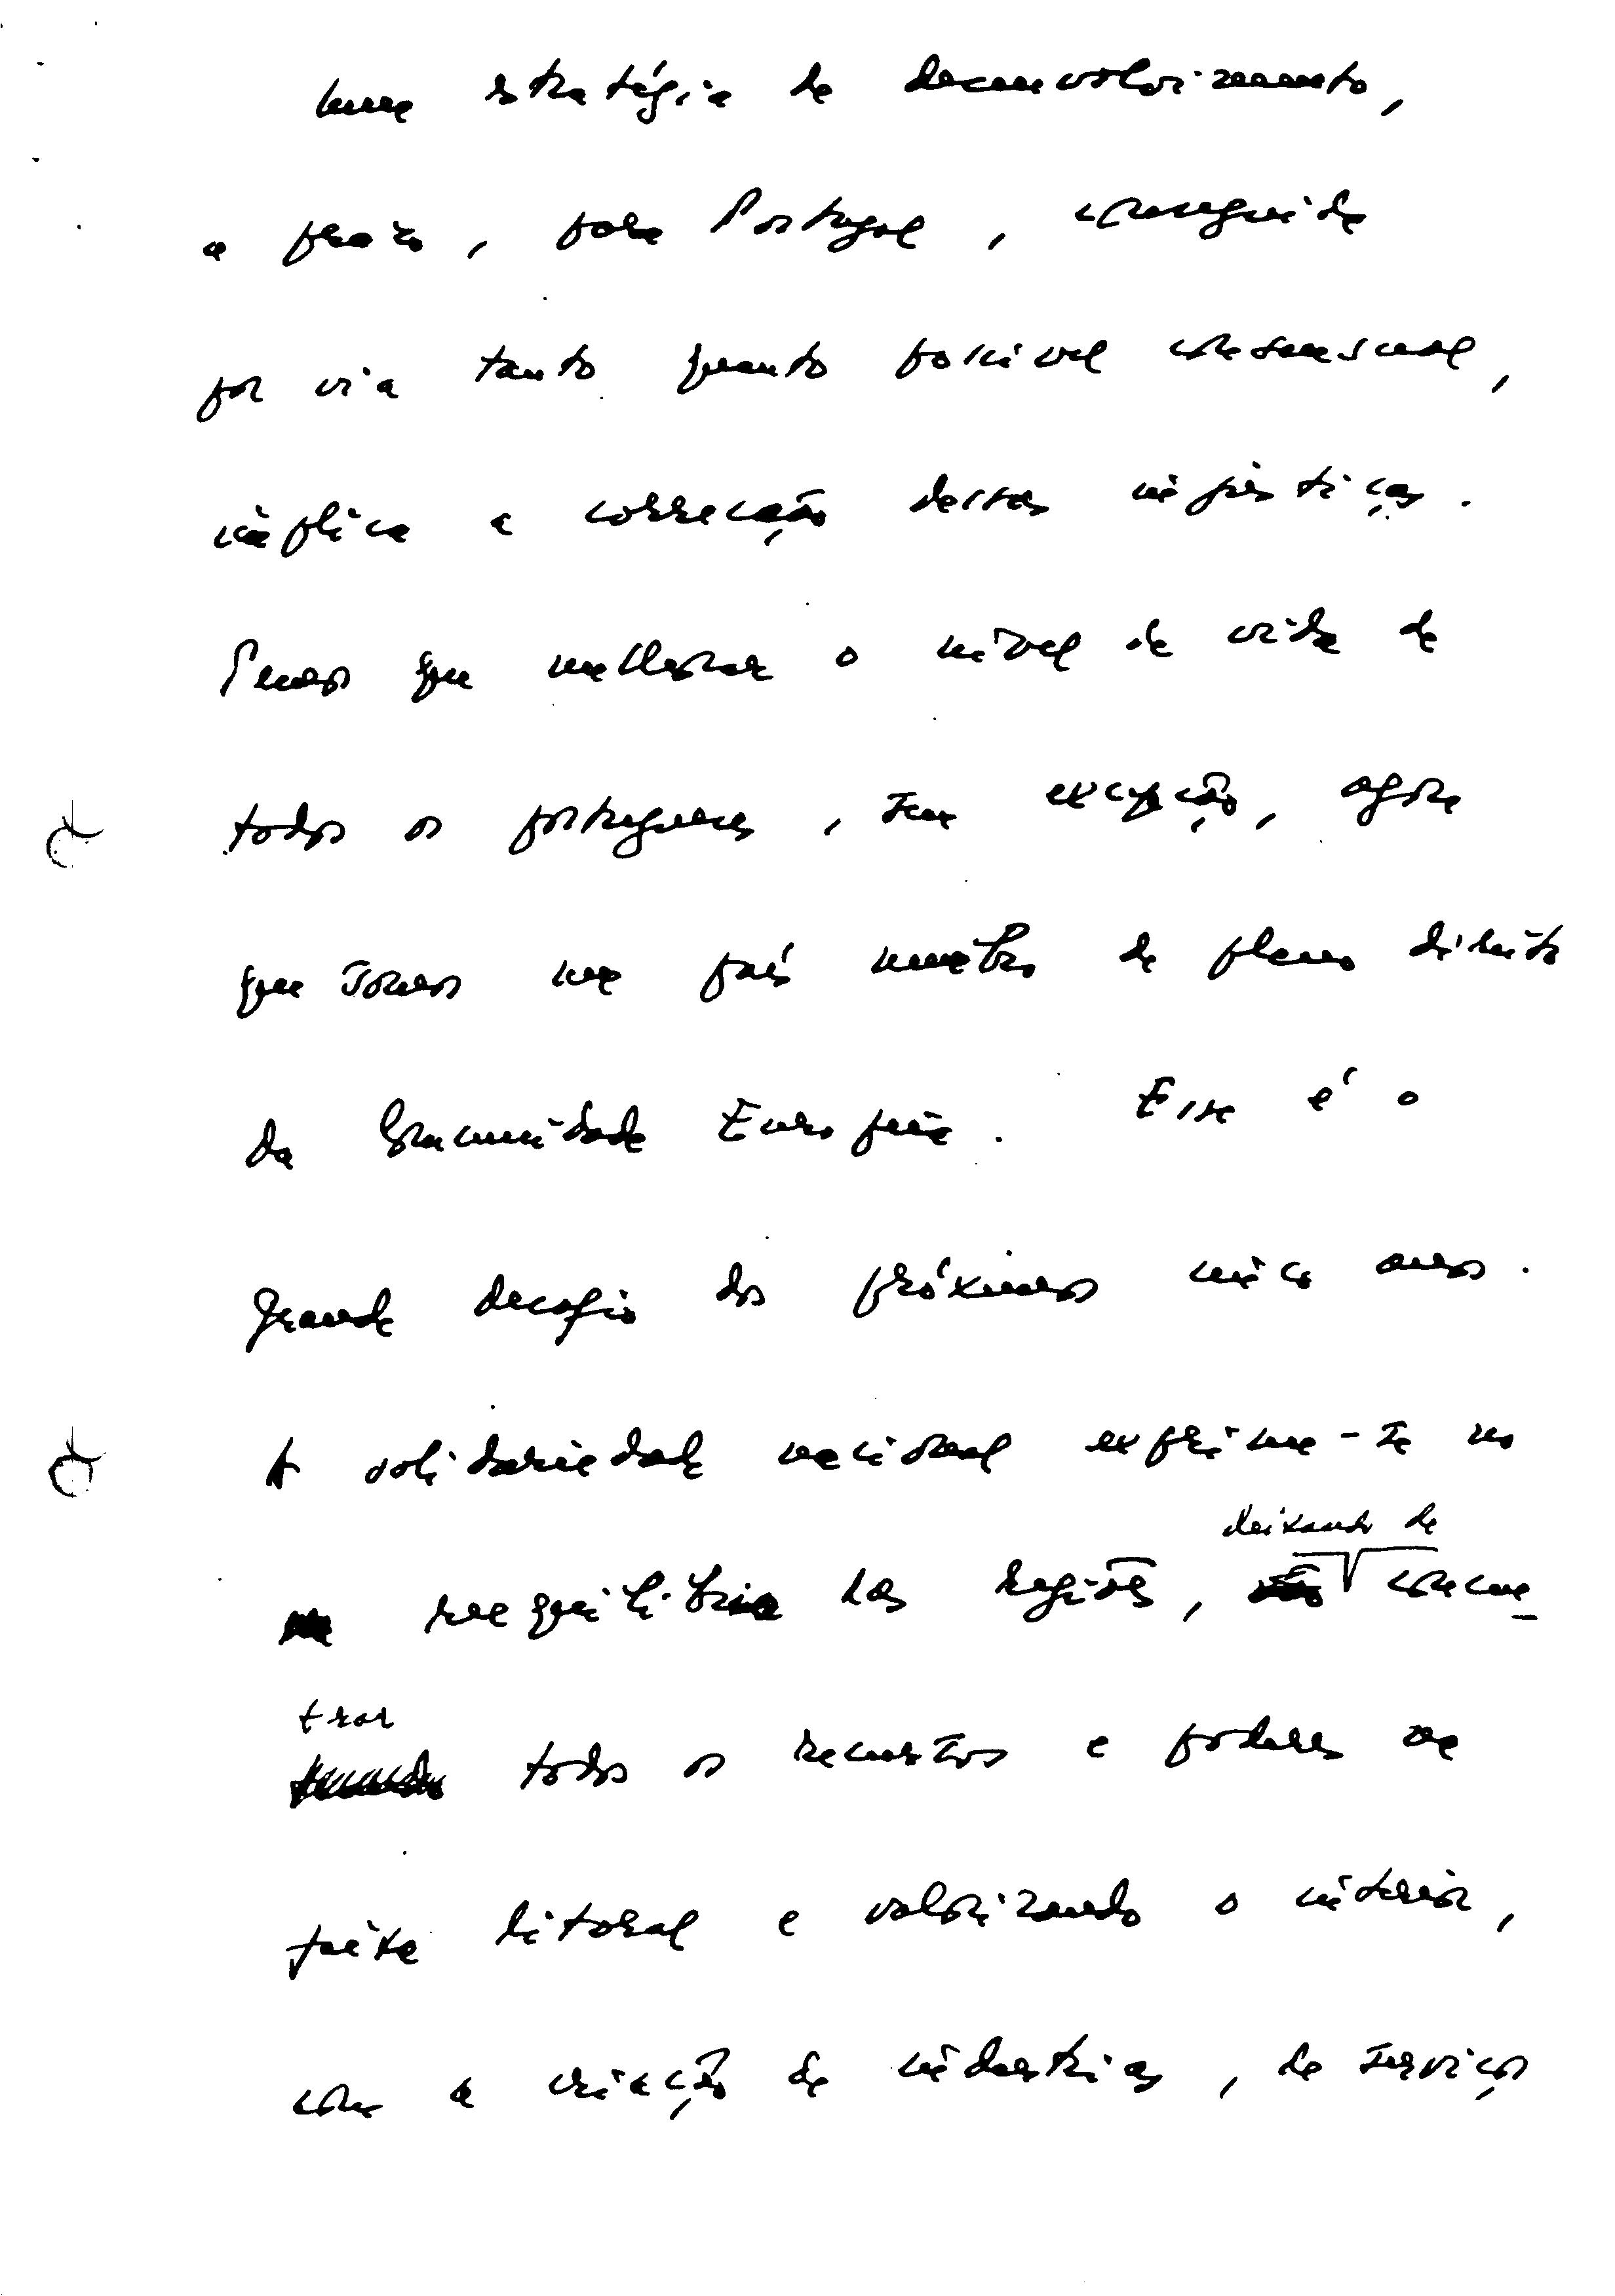 uma estratégia de desenvolvimento,
a prazo, para Portugal, conseguida
por via tanto quanto possível consensual,
implica a correcção destas injustiças.
Temos que melhorar o nível de vida de
todos os portugueses, sem excepção, agora
que somos um país membro de pleno direito
da Comunidade Europeia. Esse é o
grande desafio dos próximos cinco anos.
A solidariedade nacional exprime-se no
reequilíbrio das regiões,
deixando de
concen-
trar
todos os recursos e poderes na
faixa litoral e valorizando o interior,
com a criação de indústrias, de serviços